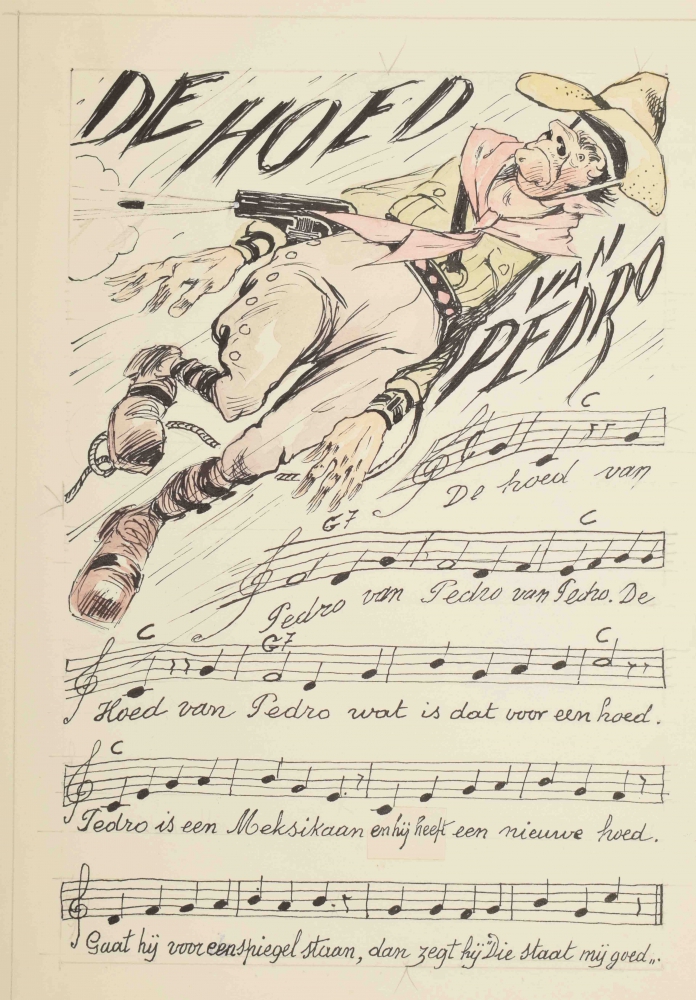 DE HOED
VAN
PEDRO
C
De hoed van
G7 C
Pedro van Pedro van Pedro. De
C G7 C
Hoed van Pedro wat is dat voor een hoed.
C
Pedro is een Meksikaan en hij heeft een nieuwe hoed.
Gaat hij voor een spiegel staan, dan zegt hij "Die staat mij goed„.